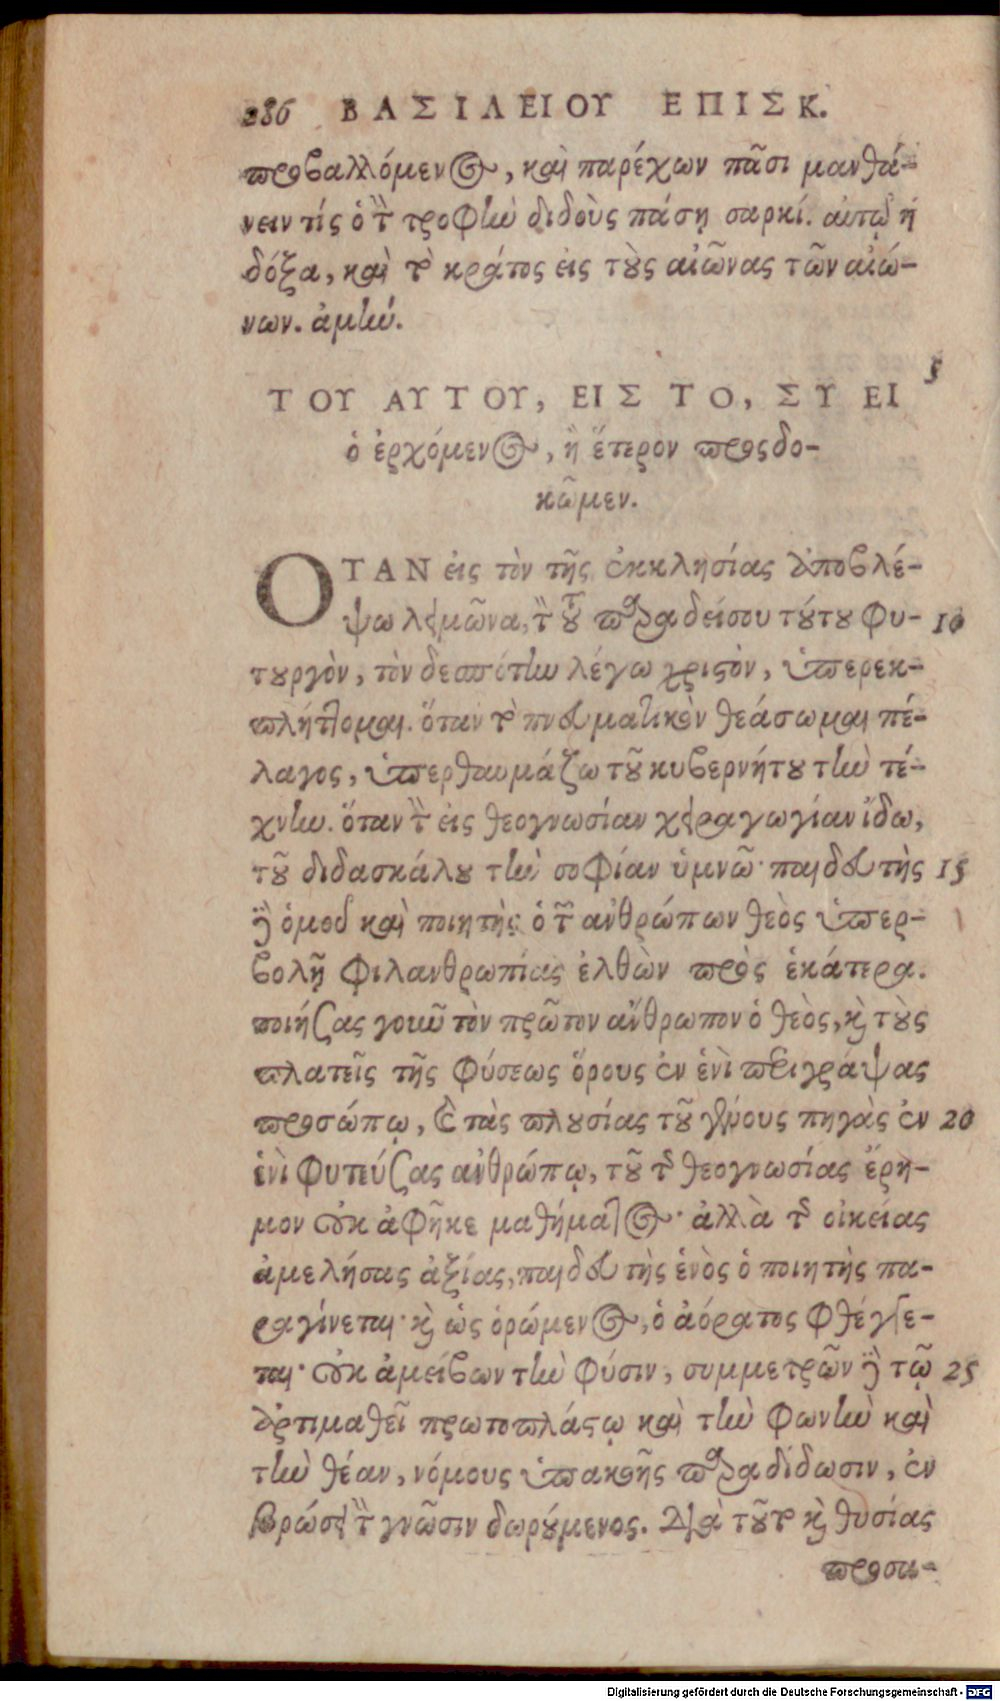 286 ΒΑΣΙΛΕΙΟΥ ΕΠΙΣΚ.
προβαλλόμενος, καὶ παρέχων πᾶσι μανθά-
νειν τίς ὁ τὴν τροφὴν διδοὺς πάσῃ σαρκί. αὐτῷ ἡ
δόξα, καὶ τὸ κράτος εἰς τοὺς αἰῶνας τῶν αἰώ-
νων. ἀμήν.
ΤΟΥ ΑΥΤΟΥ, ΕΙΣ ΤΟ, ΣΥ ΕΙ 5
ὁ ἐρχόμενος, ἢ ἕτερον προςδο-
κῶμεν.
ΟΤΑΝ εἰς τὸν τῆς ἐκκλησίας ἀποβλέ-
ψω λειμῶνα, τὸν τοῦ παραδείσου τούτου φυ- 10
τουργὸν, τὸν δεσπότην λέγω χριστὸν, ὑπερεκ-
πλήττομαι. ὅταν τὸ πνευματικὸν θεάσωμαι πέ-
λαγος, ὑπερθαυμάζω τοῦ κυβερνήτου τὴν τέ-
χνην. ὅταν τὴν εἰς θεογνωσίαν χειραγωγίαν ἴδω,
τοῦ διδασκάλου τὴν σοφίαν ὑμνῶ· παιδευτὴς 15
γὰρ ὁμοῦ καὶ ποιητὴς ὁ τῶν ἀνθρώπων θεὸς ὑπερ-
βολῇ φιλανθρωπίας ἐλθὼν πρὸς ἑκάτερα.
ποιήσας γοῦν τὸν πρῶτον ἄνθρωπον ὁ θεὸς, καὶ τοὺς
πλατεῖς τῆς φύσεως ὅρους ἐν ἑνὶ περιγράψας
προσώπῳ, καὶ τὰς πλουσίας τοῦ γένους πηγὰς ἐν 20
ἑνὶ φυτεύσας ἀνθρώπῳ, τοῦ τῆς θεογνωσίας ἔρη-
μον οὐκ ἀφῆκε μαθήματος· ἀλλὰ τῆς οἰκείας
ἀμελήσας ἀξίας, παιδευτὴς ἑνὸς ὁ ποιητὴς πα-
ραγίνεται· καὶ ὡς ὁρώμενος, ὁ ἀόρατος φθέγγε-
ται· οὐκ ἀμείβων τὴν φύσιν, συμμετρῶν γὰρ τῷ 25
ἀρτιμαθεῖ πρωτοπλάστῳ καὶ τὴν φωνὴν καὶ
τὴν θέαν, νόμους ὑπακοῆς παραδίδωσιν, ἐν
βρώσει τὴν γνῶσιν δωρούμενος. διὰ τοῦτο καὶ θυσίας
προσα-
Digitalisierung gefördert durch die Deutsche Forschungsgemeinschaft - DFG